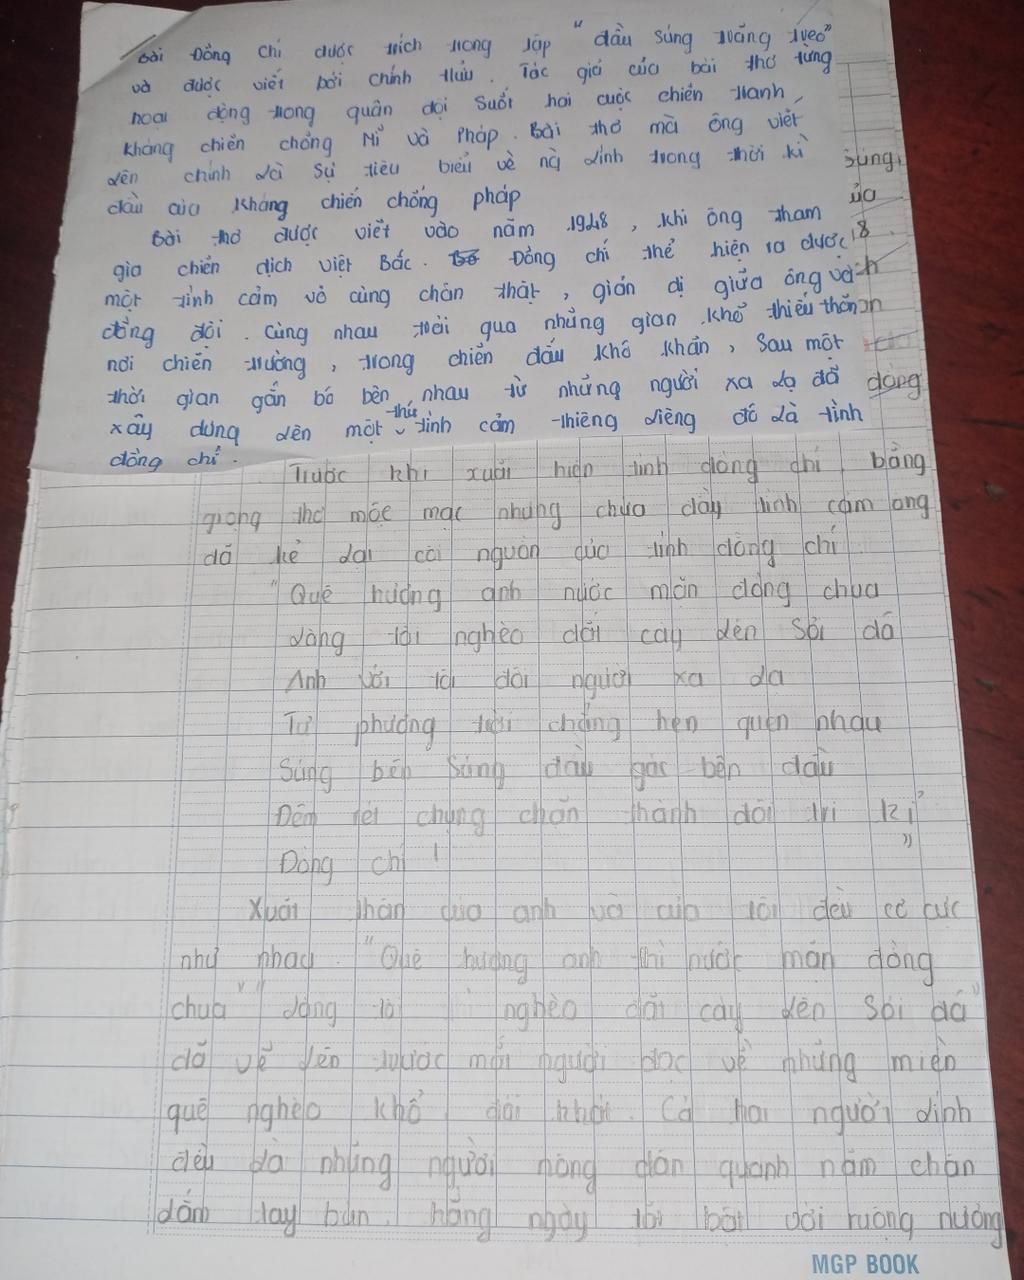 Bài Đồng chí được trích trong tập "đầu súng trăng treo"
và được viết bởi chính Hữu. Tác giả của bài thơ từng
hoạt động trong quân đội suốt hai cuộc chiến tranh,
kháng chiến chống Mĩ và Pháp. Bài thơ mà ông viết
lên chính là sự tiêu biểu về ng lính trong thời kì
đầu của kháng chiến chống pháp
Bài thơ được viết vào năm 1948, khi ông tham
gia chiến dịch việt Bắc. Đồng chí thể hiện ra được
một tình cảm vô cùng chân thật, giản dị giữa ông và
đồng đội. Cùng nhau trải qua những gian khổ thiếu thốn
nơi chiến trường, trong chiến đấu khó khăn, sau một
thời gian gắn bó bên nhau từ những người xa lạ đã
xây dựng lên một thứ tình cảm thiêng liêng đó là tình
đồng chí.
súng,
của
8
dòng
Trước khi xuất hiện tình đồng chí, bằng
giọng thơ mộc mạc nhưng chứa đầy tình cảm ông
đã kể lại cội nguồn của tình đồng chí
"Quê hương anh nước mặn đồng chua
Làng tôi nghèo đất cày lên sỏi đá
Anh với tôi đôi người xa lạ
Tự phương trời chẳng hẹn quen nhau
Súng bên súng đầu gác bên đầu
Đêm rét chung chăn thành đôi tri kỉ
Đồng chí!"
Xuất thân của anh và của tôi đều cơ cực
như nhau. "Quê hương anh thì nước mặn đồng
chua" "Làng tôi nghèo đất cày lên sỏi đá"
đã vẽ lên trước mắt người đọc về những miền
quê nghèo khổ, đói khát. Cả hai người lính
đều là những người nông dân quanh năm chân
lấm tay bùn, hằng ngày tất bật với ruộng nương
MGP BOOK